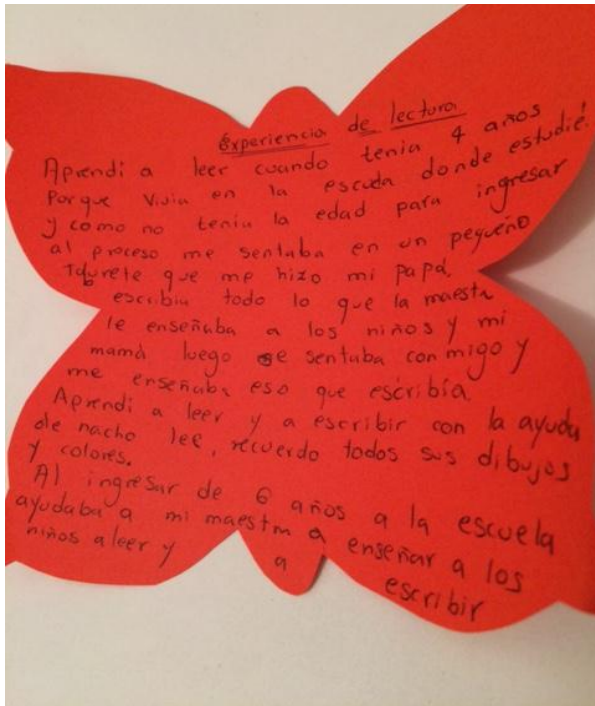 experiencia de lectura
Aprendi a leer cuando tenia 4 años
Porque Vivia en la escuela donde estudié!
y como no tenia la edad para ingresar
al proceso me sentaba en un pequeño
Taburete que me hizo mi papá.
escribia todo lo que la maestra
le enseñaba a los niños y mi
mamá luego se sentaba conmigo y
me enseñaba eso que escribía.
Aprendi a leer y a escribir con la ayuda
de nacho lee, recuerdo todos sus dibujos
y colores.
Al ingresar de 6 años a la escuela
ayudaba a mi maestra a enseñar a los
niños a leer y a escribir